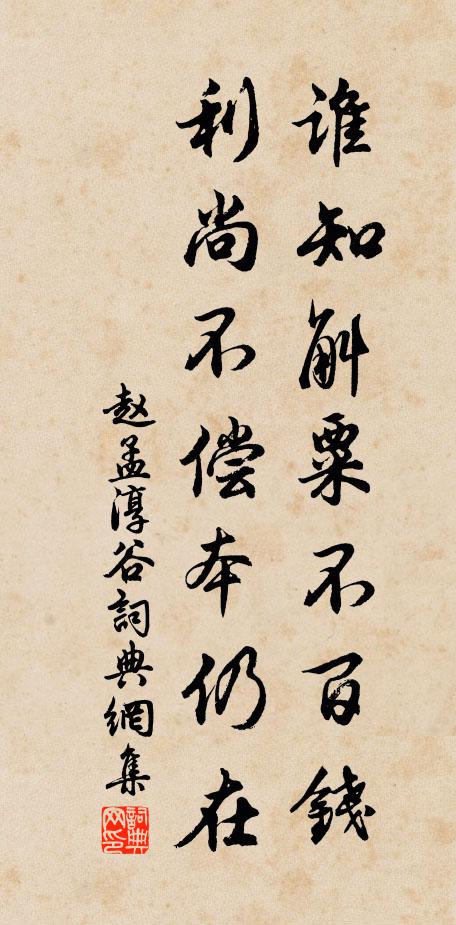 谁知斛粟不百錢
利尚不偿本仍在
赵孟淳谷詞典網集
詞典网印